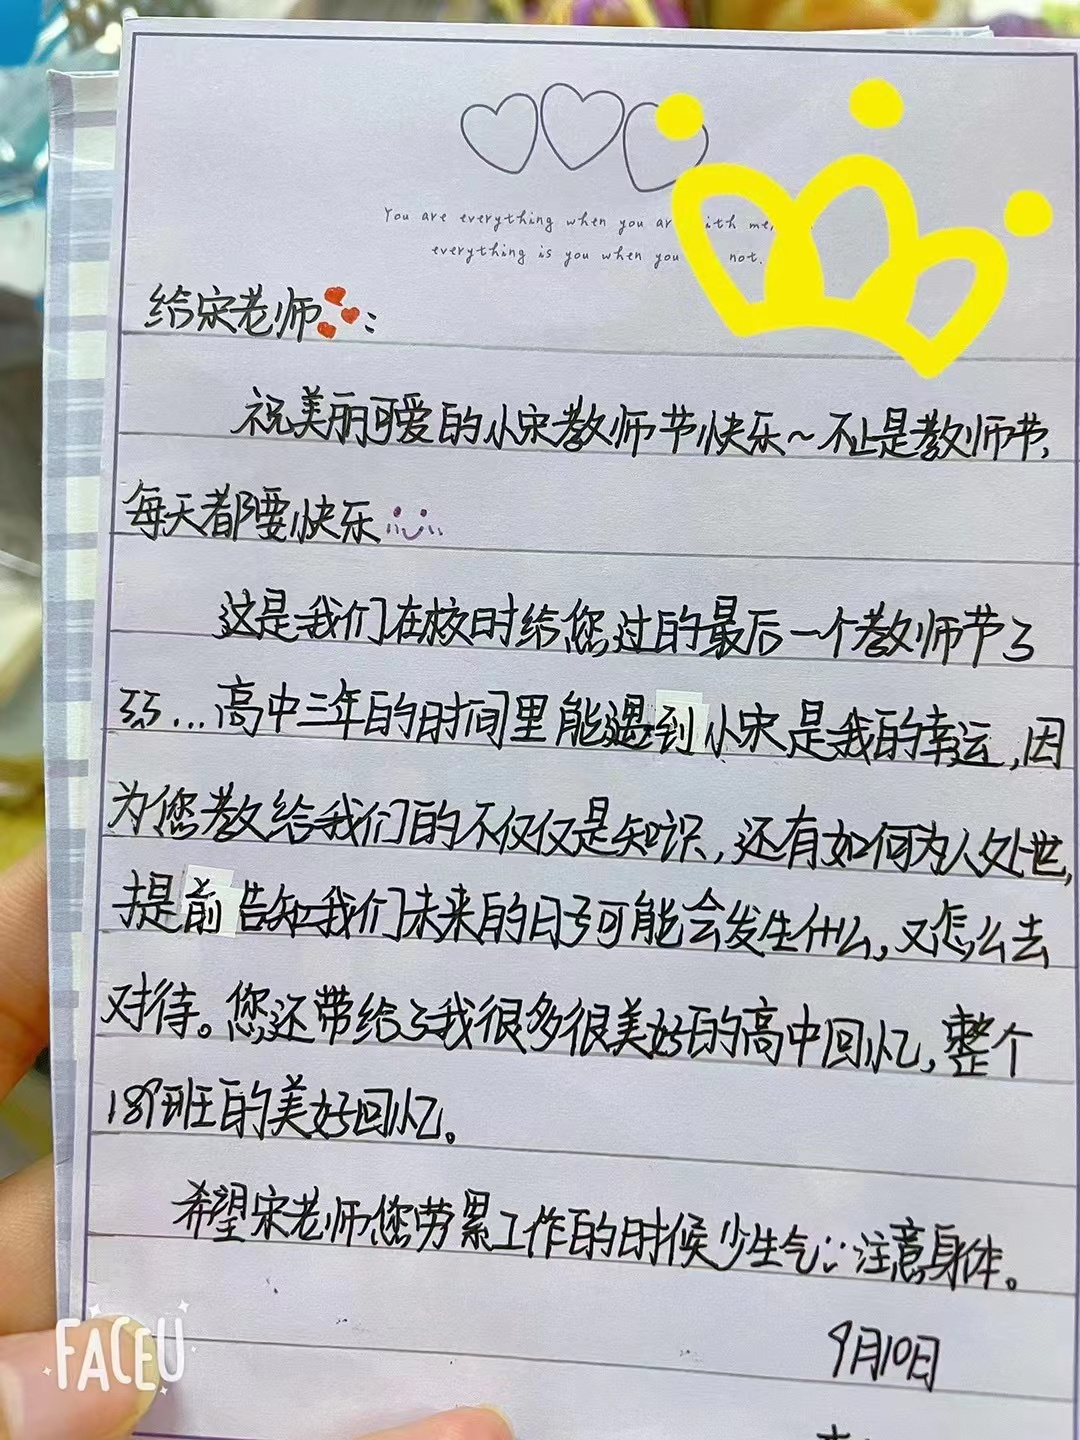 You are everything when you are with me,
everything is you when you not.
给宋老师:
祝美丽可爱的小宋教师节快乐~不止是教师节,
每天都要快乐
这是我们在校时给您过的最后一个教师节了
呜呜...高中三年的时间里能遇到小宋是我的幸运,因
为您教给我们的不仅仅是知识,还有如何为人处世,
提前告知我们未来的日子可能会发生什么,又怎么去
对待。您还带给了我很多很美好的高中回忆,整个
189班的美好回忆。
希望宋老师您劳累工作的时候少生气 注意身体。
9月10日
FACEU